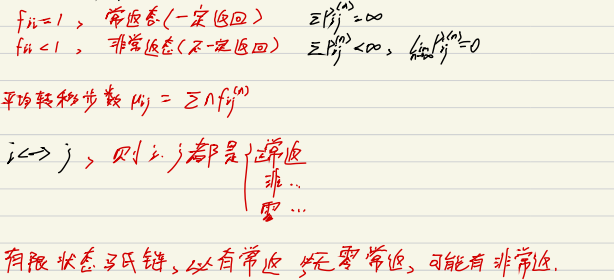 fii=1，常返态(一定返回) ΣPij^(n)=∞
fii<1，非常返态(不一定返回) ΣPij^(n)<∞，lim n→∞ Pij^(n)=0
平均转移步数 μij = Σnfij^(n)
i<->j，则i.j都是{常返
非..
零...
有限状态马氏链，必有常返，无零常返，可能有非常返.